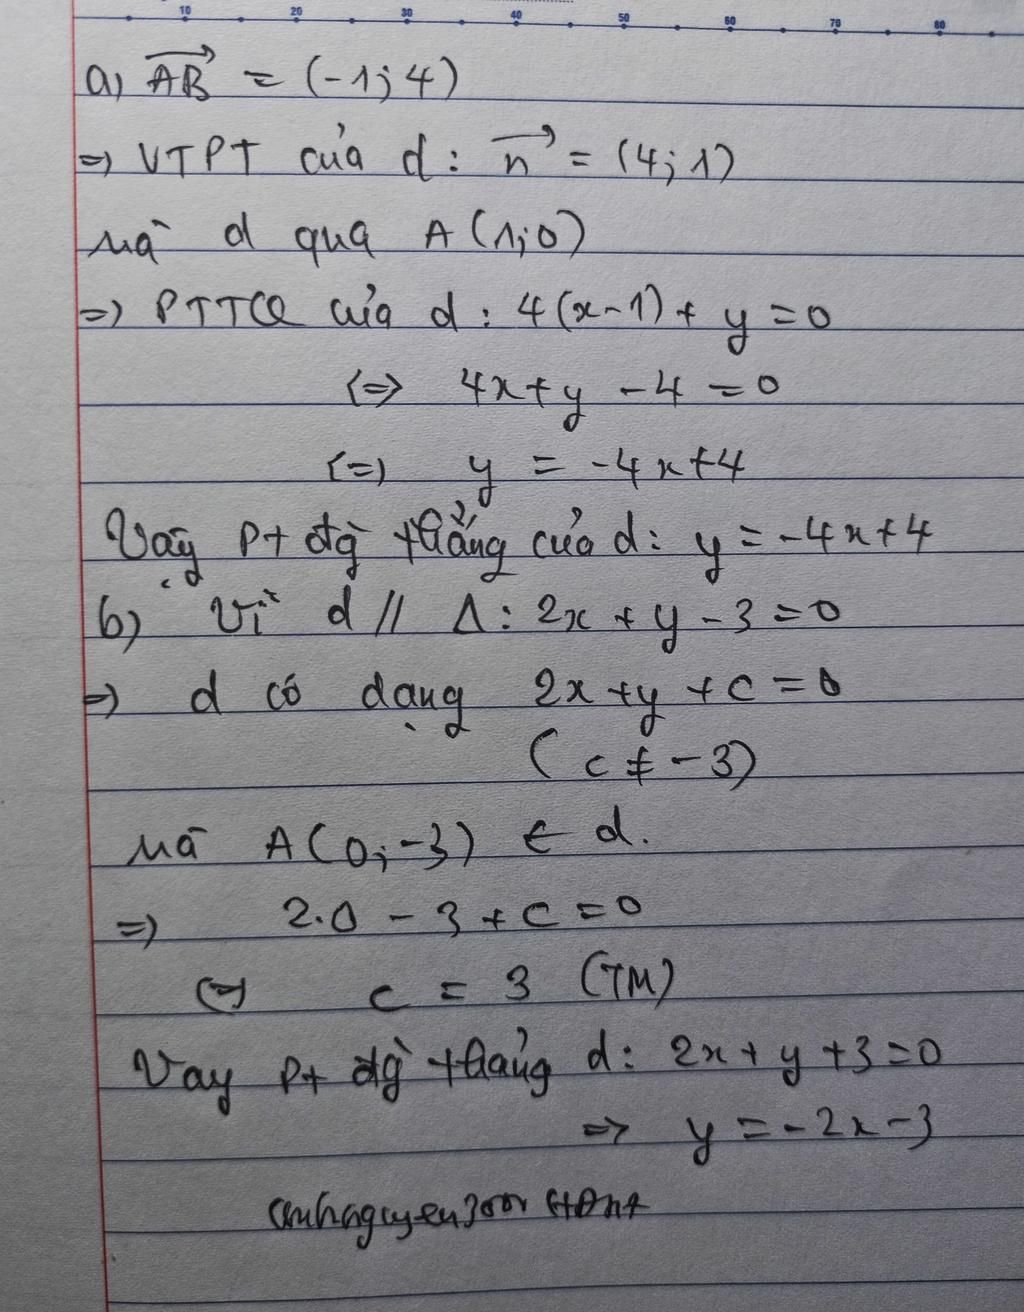 10 20 30 40 50 60 70 80
a) AB = (-1; 4)
=) VTPT của d: n = (4; 1)
Mà d qua A (1; 0)
=) PTTQ của d: 4(x-1) + y = 0
<=> 4x + y - 4 = 0
(=) y = -4x+4
Vậy pt đg thẳng của d: y = -4x+4
b) Vì d // Δ: 2x + y - 3 = 0
=) d có dạng 2x + y + c = 0
(c ≠ -3)
Mà A(0; -3) ∈ d.
=) 2.0 - 3 + c = 0
(=) c = 3 (TM)
Vay pt đg thẳng d: 2x + y + 3 = 0
=> y = -2x - 3